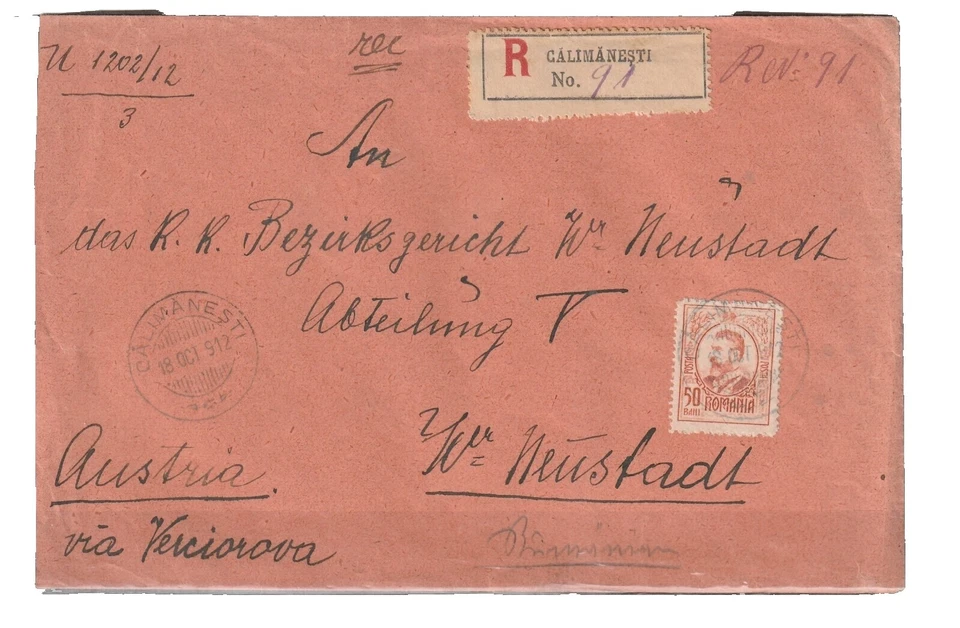 U 1202/12
3
rec
R CĂLIMĂNEȘTI
No. 91
R No: 91
An
das K. K. Bezirksgericht Wr Neustadt
Abteilung V
CĂLIMĂNEȘTI
18 OCT 912
POSTA
50
BANI
ROMANIA
Wr Neustadt
Austria.
via Verciorova
Rumänien